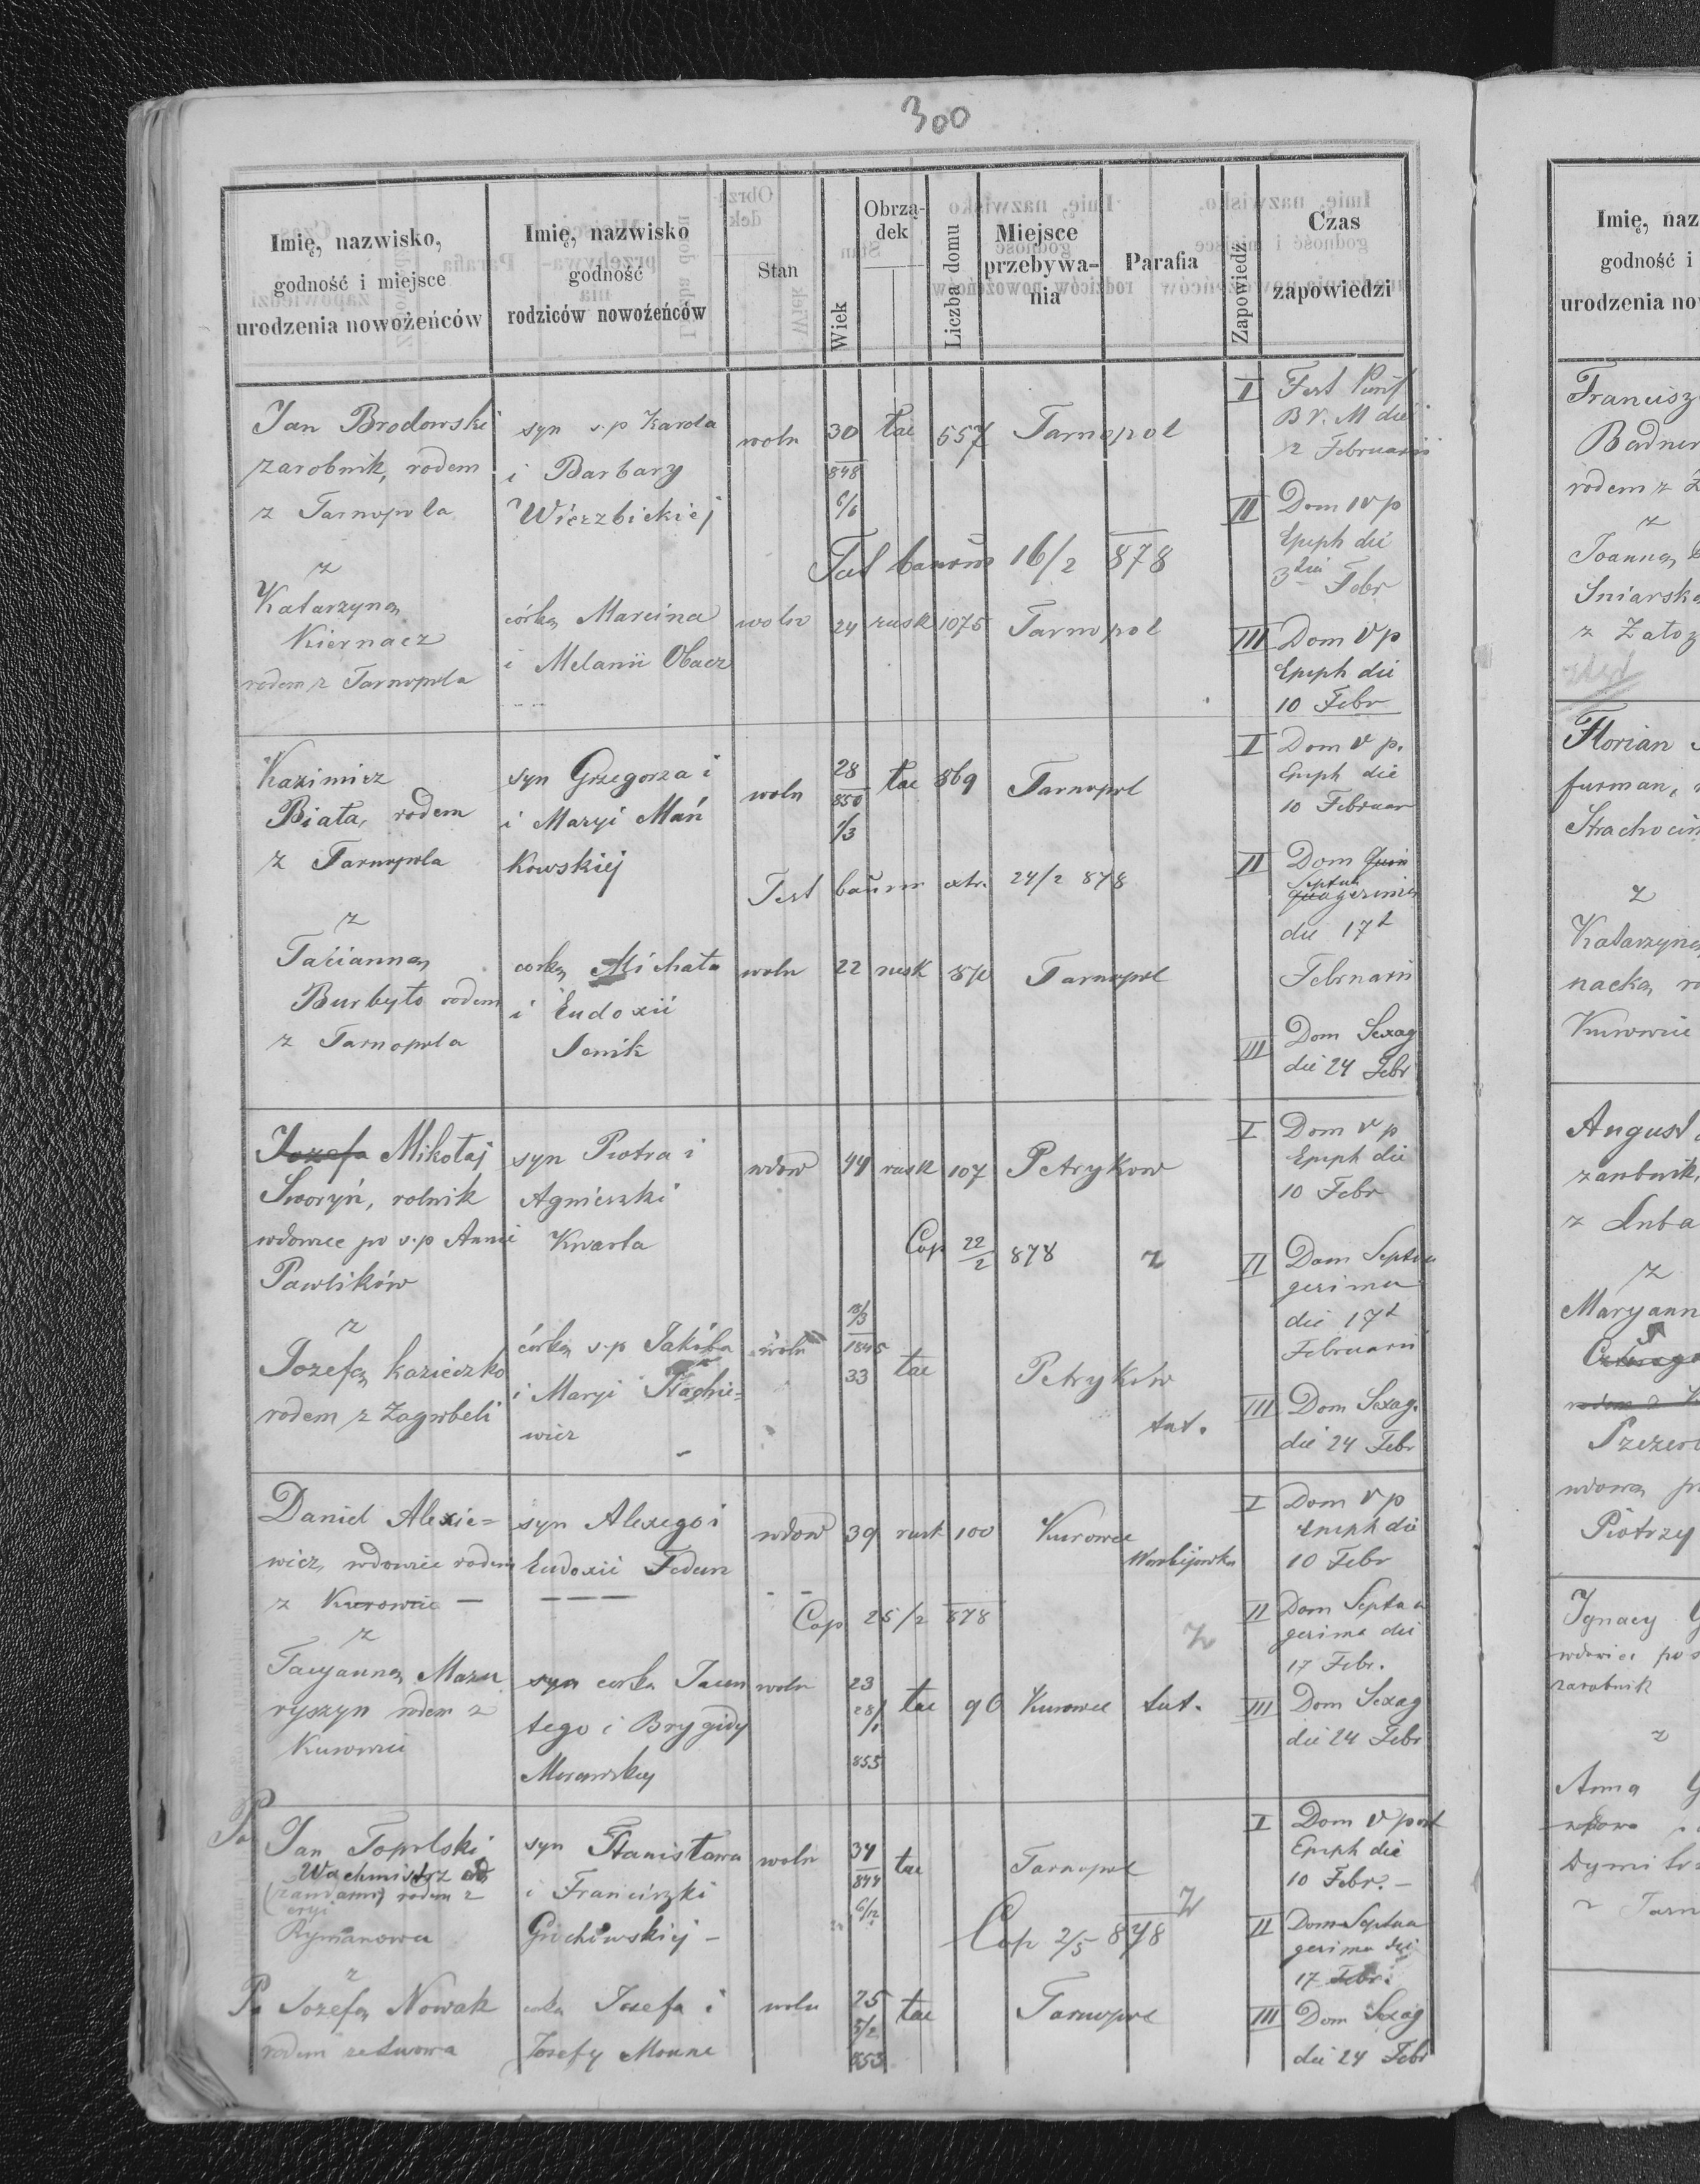 300
Imię, nazwisko,
godność i miejsce
urodzenia nowożeńców
Imię, nazwisko
godność
rodziców nowożeńców
Stan
Wiek
Obrzą-
dek
Liczba domu
Miejsce
przebywa-
nia
Parafia
Zapowiedź
Czas
zapowiedzi
Jan Brodowski
zarobnik, rodem
z Tarnopola
syn s.p Karola
i Barbary
Wierzbickiej
woln
30
848
6/6
łac
557
Tarnopol
I Fest Purif
B V. M die
2 Februarii
II Dom IV p
Epiph die
3 Febr
16/2 878
z
Katarzyną
Kiernacz
rodem z Tarnopola
córką Marcina
i Melanii Obacz
woln
24
rusk
1075
Tarnopol
III Dom V p
Epiph die
10 Febr
Kazimierz
Biała, rodem
z Tarnopola
syn Grzegorza i
i Maryi Mań
kowskiej
woln
28
850
1/3
łac
869
Tarnopol
I Dom V p.
Epiph die
10 Februar
24/2 878
II Dom
Septua
gesima
die 17
Februarii
z
Tacianną
Burbyło rodem
z Tarnopola
corką Michała
i Eudoxii
Senik
woln
22
rusk
870
Tarnopol
III Dom Sexag
die 24 Febr
Jozefa Mikołaj
Sworyń, rolnik
wdowiec po s.p Annie
Pawlików
syn Piotra i
Agnieszki
Kwarta
wdow
44
rusk
107
Petrykow
I Dom V p
Epiph die
10 Febr
Cop 22/2 878
z
II Dom Septua
gesima
die 17
Februarii
z
Jozefą Kazieczko
rodem z Zagrobeli
córką s.p Jakóba
i Maryi
wicz
woln
1845
33
łac
Petryków
tut.
III Dom Sexag.
die 24 Febr
Daniel Alexie=
wicz, wdowiec rodem
z Kurowiec
syn Alexego i
Eudoxii Fedun
wdow
39
rusk
100
Kurowce
I Dom V p
Epiph die
10 Febr
Cop 25/2 878
z
II Dom Septua
gesima die
17 Febr.
z
Tacyanną Mazu
ryszyn rodem z
Kurowiec
syn corka Jacen
tego i Brygidy
Morawskiej
woln
23
28/1
855
łac
90
Kurowce
tut.
III Dom Sexag
die 24 Febr
Jan Topolski
Wachmistrz od
żandarm rodem z
eryi
Rymanowa
syn Stanisława
i Franciszki
Grochowskiej
woln
34
844
6/12
łac
Tarnopol
I Dom V post
Epiph die
10 Febr.
Cop 2/5 878
z
II Dom Septua
gesima die
17 Febr.
z
Jozefą Nowak
rodem ze Lwowa
corka Jozefa i
Jozefy
woln
25
5/2
853
łac
Tarnopol
III Dom Sexag
die 24 Febr
Imię, naz
godność i
urodzenia no
Francisz
Badner
rodem z Z
z
Joanną
Sniarska
z Załoz
Florian
furman,
Strachocin
z
Katarzyną
nacką ro
Kurowiec
August
zarobnik,
z Luba
z
Maryann
wdową p
Piotrzy
Ignacy G
wdowiec po s
zarobnik
z
Anna G
wdowa
Dymitr
z Tarn